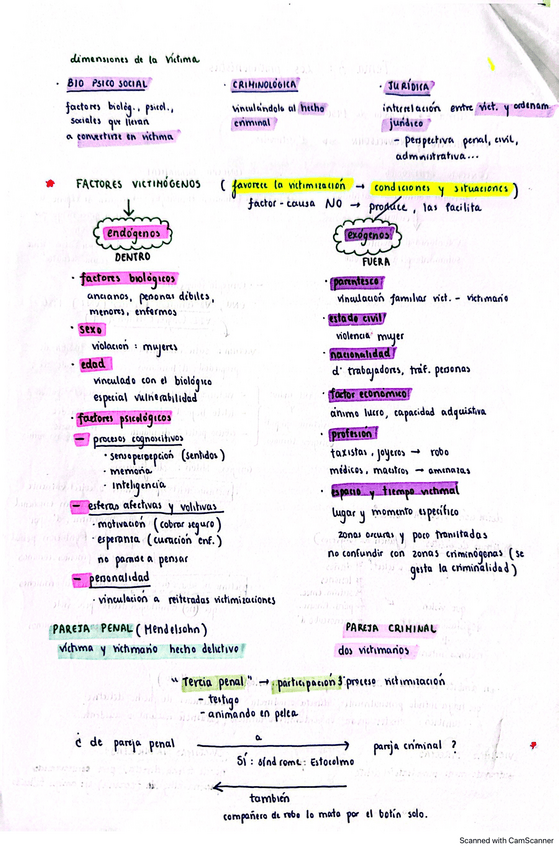 Scanned with CamScanner
dimensiones de la víctima
· BIO PSICO SOCIAL
factores biológ., psicol.,
sociales que llevan
a convertirse en víctima
· CRIMINOLÓGICA
vinculándolo al hecho
criminal
· JURÍDICA
interrelación entre vict. y ordenam.
jurídico
- perspectiva penal, civil,
administrativa...
* FACTORES VICTIMÓGENOS ( favorece la victimización → condiciones y situaciones )
factor - causa NO → produce, las facilita
endógenos
DENTRO
· factores biológicos
ancianos, personas débiles,
menores, enfermos
· sexo
violación : mujeres
· edad
vinculado con el biológico
especial vulnerabilidad
· factores psicológicos
- procesos cognoscitivos
· sensopercepción (sentidos)
· memoria
· inteligencia
- esferas afectivas y volitivas
· motivación (cobrar seguro)
· esperanza (curación enf.)
no pararse a pensar
- personalidad
· vinculación a reiteradas victimizaciones
exógenos
FUERA
· parentesco
vinculación familiar vict. - victimario
· estado civil
violencia mujer
· nacionalidad
d' trabajadores, tráf. personas
· factor económico
ánimo lucro, capacidad adquisitiva
· profesión
taxistas, joyeros → robo
médicos, maestros → amenazas
· espacio y tiempo victimal
lugar y momento específico
zonas oscuras y poco transitadas
no confundir con zonas criminógenas (se
gesta la criminalidad)
PAREJA PENAL (Mendelsohn)
víctima y victimario hecho delictivo
PAREJA CRIMINAL
dos victimarios
"Tercia penal" → participación 3º proceso victimización
- testigo
- animando en pelea
¿ de pareja penal a pareja criminal ? *
SÍ : síndrome : Estocolmo
también
compañero de robo lo mata por el botín solo.
Scanned with CamScanner